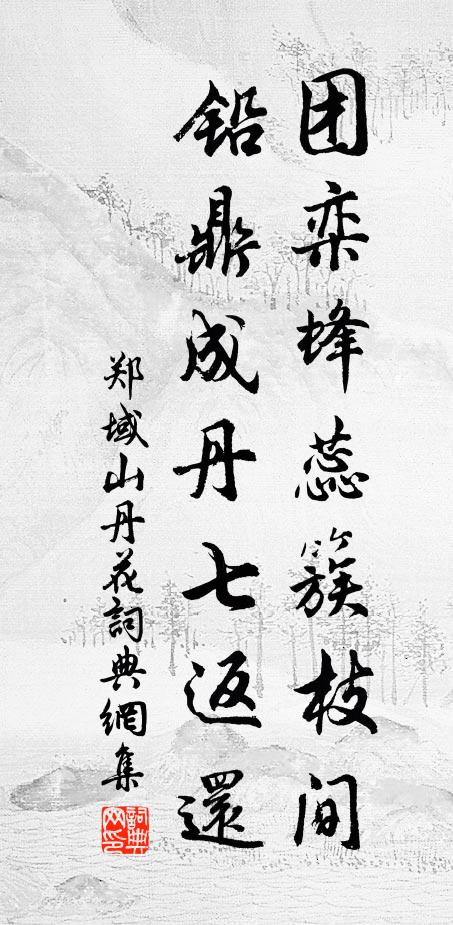 团栾蜂蕊簇枝间
铅鼎成丹七返還
郑域山丹花詞典網集
詞典网印